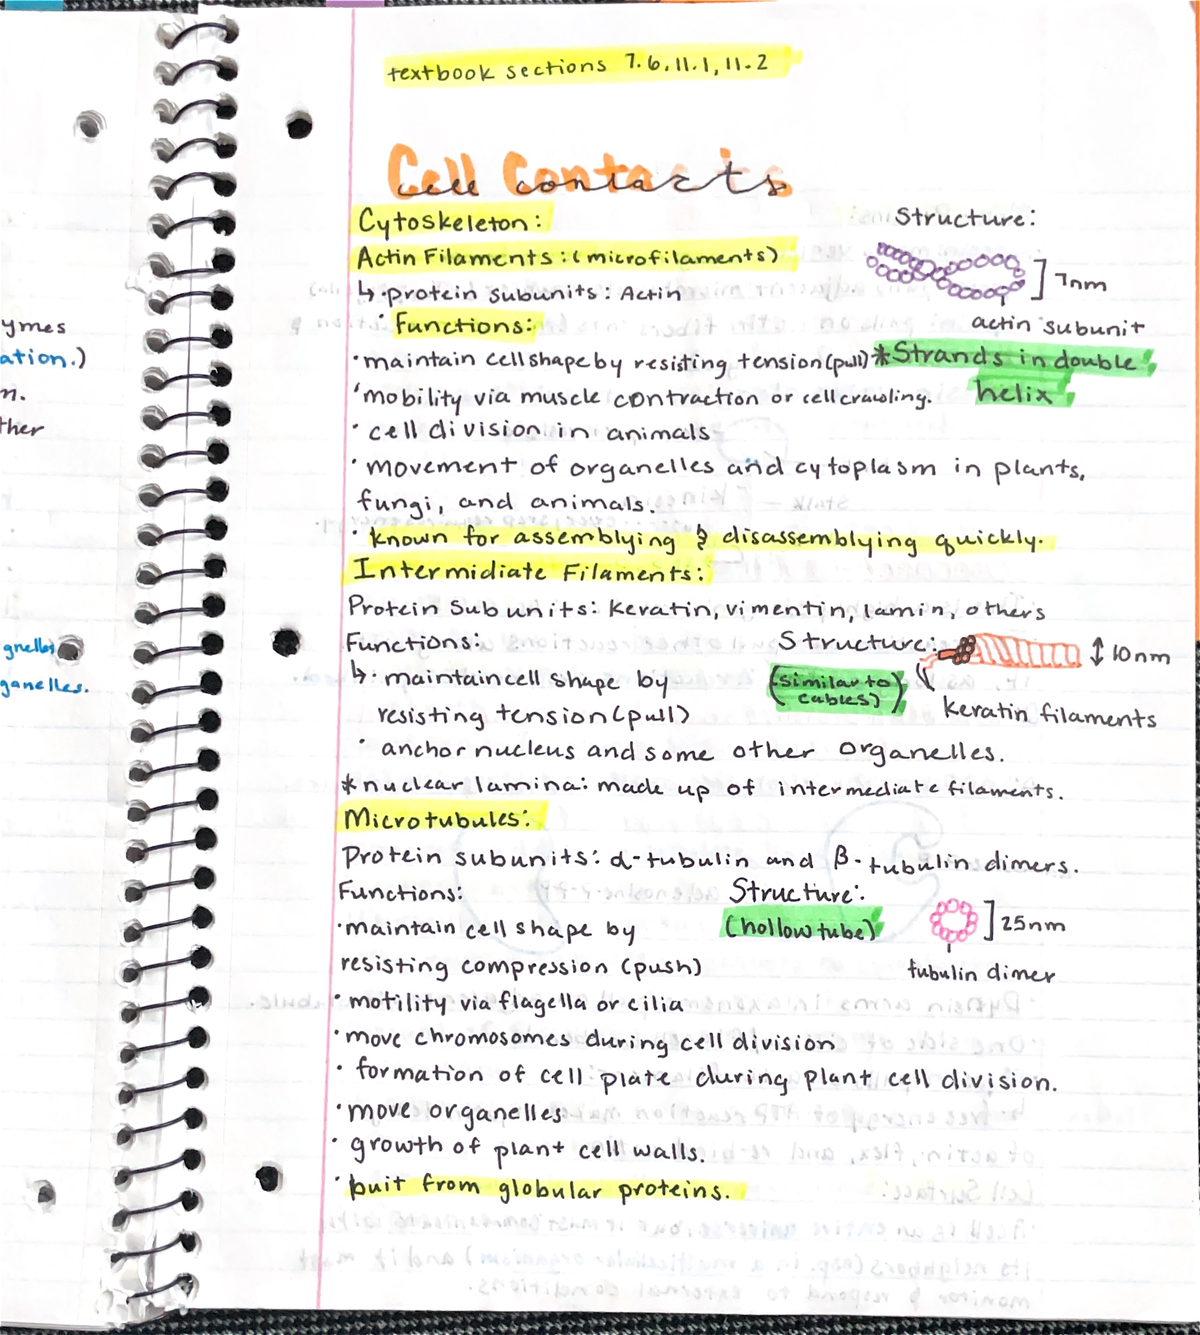 textbook sections 7.6, 11.1, 11.2
Cell Contacts
Cytoskeleton:
Structure:
Actin Filaments: (microfilaments)
7nm
↳ protein subunits: Actin
actin subunit
· Functions:
· maintain cell shape by resisting tension (pull)
*Strands in double
helix
· mobility via muscle contraction or cell crawling.
· cell division in animals
· movement of organelles and cytoplasm in plants,
fungi, and animals.
· known for assemblying & disassemblying quickly.
Intermidiate Filaments:
Protein Subunits: Keratin, vimentin, lamin, others
Functions:
Structure:
10nm
(similar to
cables)
keratin filaments
↳ · maintain cell shape by
resisting tension (pull)
· anchor nucleus and some other organelles.
*nuclear lamina: made up of intermediate filaments.
Microtubules:
Protein subunits: α-tubulin and β-tubulin dimers.
Functions:
Structure:
(hollow tube)
25nm
tubulin dimer
· maintain cell shape by
resisting compression (push)
· motility via flagella or cilia
· move chromosomes during cell division
· formation of cell plate during plant cell division.
· move organelles
· growth of plant cell walls.
· buit from globular proteins.
ymes
ation.)
n.
ther
gnelles
ganelles.